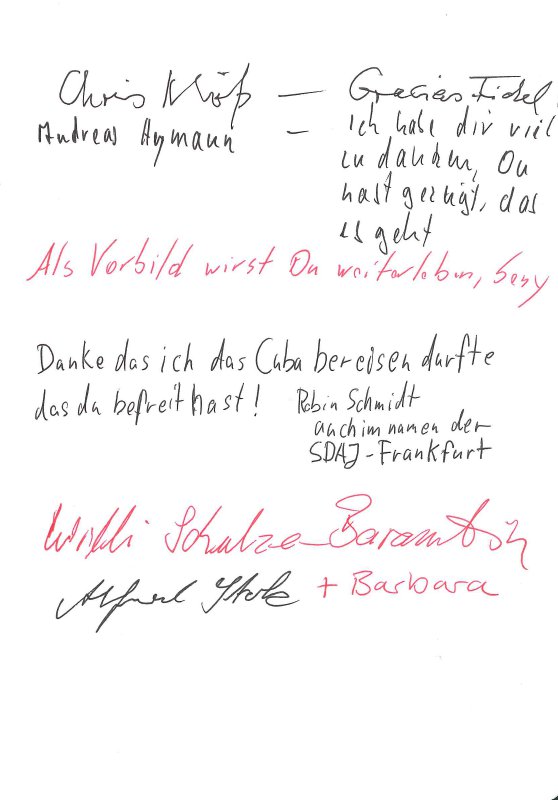 Chris Klöß — Gracias Fidel
Andreas Aymann — Ich habe dir viel
zu danken, Du
hast gezeigt, das
es geht
Als Vorbild wirst Du weiterleben,
Danke das ich das Cuba bereisen durfte
das du befreit hast! Robin Schmidt
auch im namen der
SDAJ-Frankfurt
Willi Schulze-
Alfred + Barbara